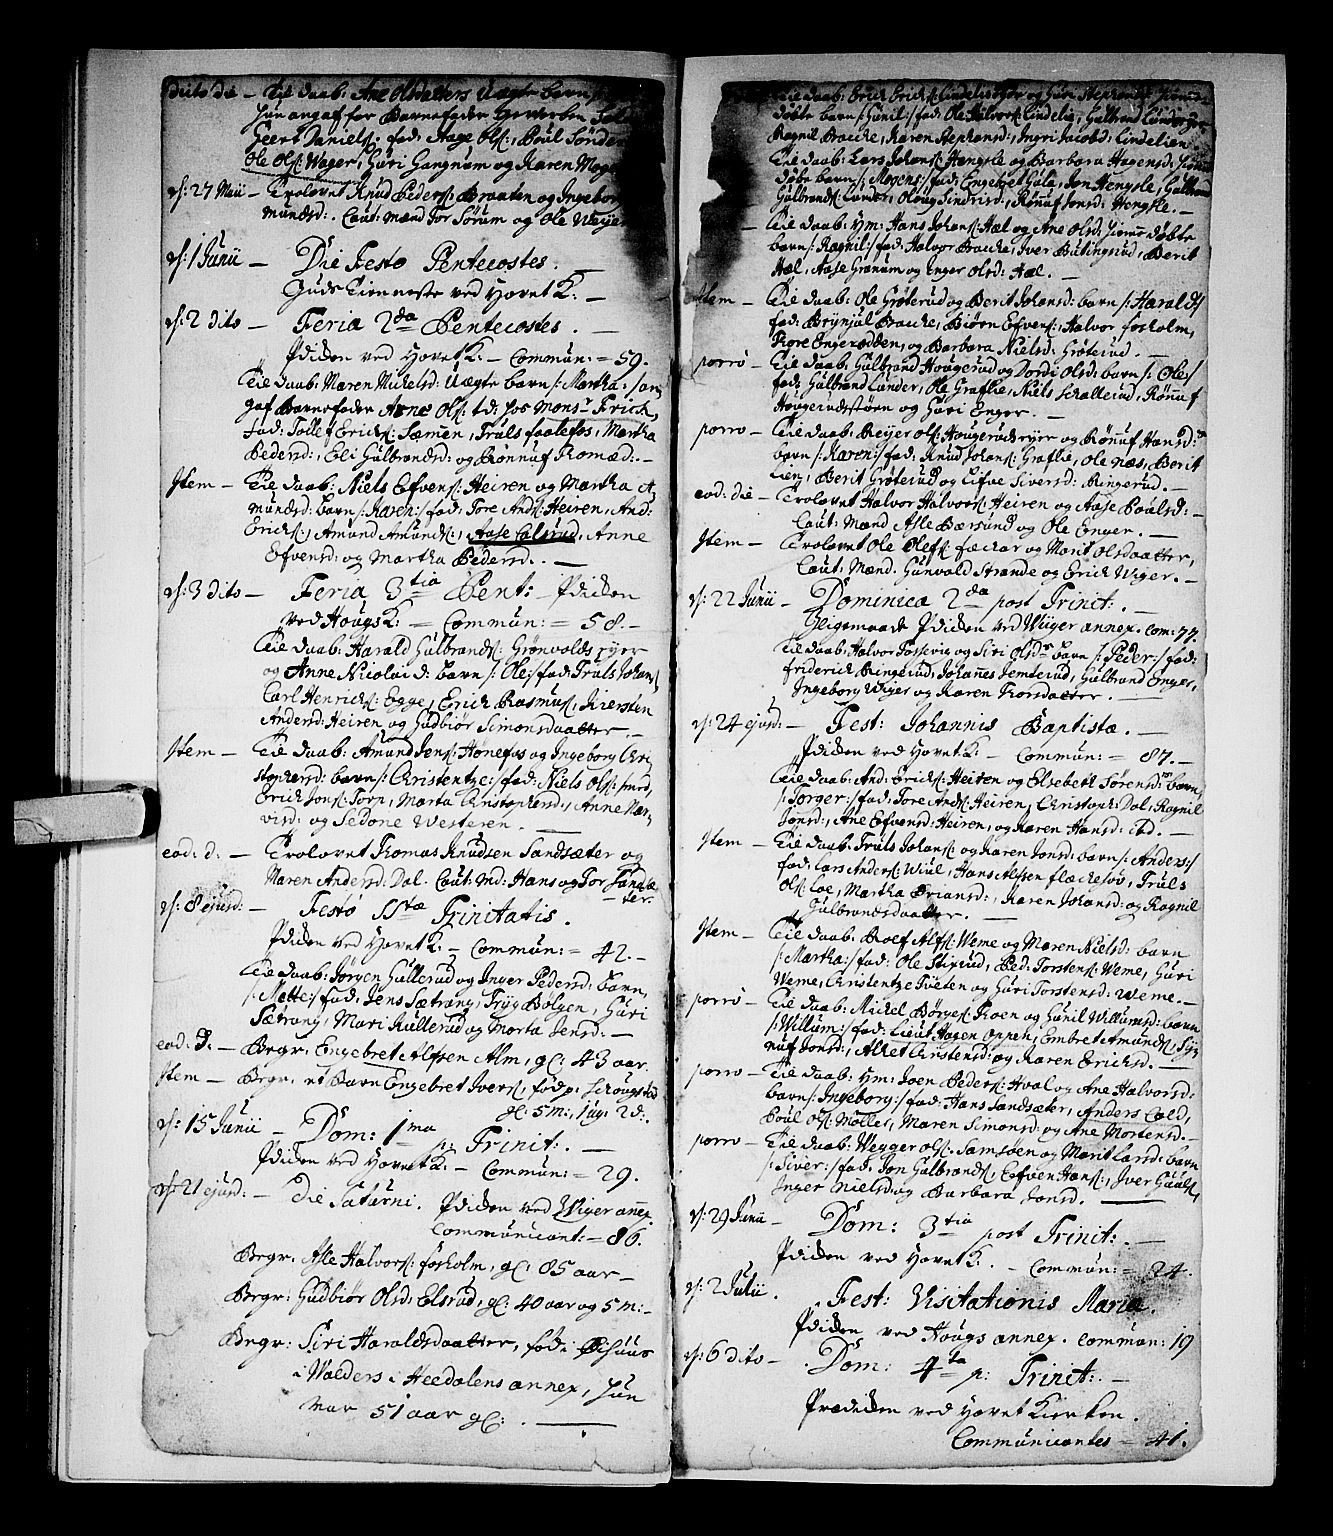 dito die – Til daab: Ane Olsdatters Uægte barn
Hun angaf for Barnefader
Geert Daniels: fad: Aage Ols:, Poul Sønder
Ole Ols: Wager, Guri Gangnum og Karen
d: 27 Maii – Trolovet Knud Peders: Braaten og Ingebor
munds: Caut: mænd Tor Sørum og Ole Wager
d: 1 Junii – Die Festo Pentecostes. –
Guds Tienneste ved Hovet K: –
d: 2 dito – Feria 2da Pentecostes. –
Prædiken ved Hovet K: – Commun: = 59.
Til daab: Maren Mickelsd: Uægte barn /: Martha :/ an-
gaf Barnefader Arne Ols: td: hos Monsr Frick,
fad: Tollef Ericks: Sæmen, Truls faalefos, Martha
Pedersd:, Eli Gulbrandsd: og Ronnuf Komæd: –
Item – Til daab: Niels Efvens: Heiren og Martha A-
mundsd: barn /: Karen :/ fad: Tore Ands: Heiren, And:
Ericks:, Amund Amunds:, Aase Colsrud, Anne
Efvensd: og Martha Pedersd: –
d: 3 dito – Feria 3tia Pent: – Prædiken
ved Hougs K: = Commun: = 58 –
Til daab: Harald Gulbrands: Grønvolds eyer
og Anne Nicolai d: barn /: Ole :/ fad: Truls Johans:
Carl Henricks: Egge, Erick Rasmus:, Kiersten
Andersd: Heiren og Gudbiør Simonsdaatter –
Item – Til daab: Amund Jens: Hønefos og Ingeborg Chri-
stophersd: barn /: Christentze :/ fad: Niels Ols: smed,
Erick Jons: Torp, Marta Christophersd:, Anne Mar-
visd: og Sedone Westeren. –
eod: d: – Trolovet Thomas Knudsen Sandsæter og
Maren Andersd: Dal. Caut: Md: Hans og Tor Sandsæ-
ter.
d: 8 ejusd: – Festo SStæ Trinitatis.
Prædiken ved Hovet K: – Commun: = 42. –
Til daab: Jørgen Hullerud og Inger Pedersd: barn,
/: Mette :/ fad: Jens Sætrang, Tryg Bolgen, Guri
Sætrang, Mari Kullerud og Morta Jensd: –
eod: d: – Begr: Engebret Alfsen Alm, gl: 43 aar.
Item – Begr: et Barn Engebret Ivers:, fød p:
gl: 5 m:, 1 ug: 2 d:
d: 15 Junii – Dom: 1ma p: Trinit: –
Prædiken ved Hovet K: – Commun: = 29.
d: 21 ejusd: – die Saturni. Prædiken ved Wiger anex,
Communicant: = 86.
Begr: Asle Halvors: foskolm, gl: 85 aar –
Begr: Gudbiør Olsd: Elsrud, gl: 40 aar og 5 m: –
Begr: Siri Haraldsdaatter, fød i
i Walders i Heedalens annex, hun
var 51 aar gl: –
Til daab: Erick Ericks: Lindelis eyer og Guri Hieme-
døbte barn /: Gunil :/ fad: Ole Halvors: Lindelie, Gulbrand Lunder
Ragnil Bracke, Karen Stephensd:, Ingri Jacobsd: Lindelien
Til daab: Lars Johans: Hengsle og Barbara Hagensd: Hiem
døbte barn /: Mogens :/ fad: Engebret Gula, Jon Hengsle, Gulbrand
Gulbrands: Lunder, Roug Sindresd:, Rønnuf Jonsd: Hengsle. –
Til daab: ym: Hans Johans: Hæl og Ane Olsd: Hieme døbte
barn /: Ragnil :/ fad: Halvor Bracke, Iver Butingsrud, Berit
Hæl, Aase Granum og Inger Olsd: Hæl. –
Item – Til daab: Ole Grøterud og Berit Johansd: barn /: Harald :/
fad: Brynjul Bracke, Biørn Efvens:, Halvor foskolm,
Thore Engerodden, og Barbara Nielsd: Grøterud. –
porro – Til daab: Gulbrand Hougerud og Dordi Olsd: barn /: Ole :/
fad: Gulbrand Lunder, Ole Graflie, Niels Skallerud, Rønnuf
Hougerudstøen og Guri Enger. –
porro – Til daab: Reyer Ols: Hougeruds eyer og Rønnuf Hansd:
barn /: Karen :/ fad: Knud Johans: Graflie, Ole Næs, Berit
Lien, Berit Grøterud og Eifve Siversd: Ringerud. –
eod: die – Trolovet Halvor Halvors: Heiren og Aase Poulsd: –
Caut: Mænd Asle Bærsund og Ole Enger. –
Item – Trolovet Ole Olefs: feckar og Marit Olsdaatter,
Caut: Mænd. Gunvald Strande og Erick Wiger. –
d: 22 Junii – Dominica 2da post Trinit: –
Ligemaade Prædiken ved Wiger annex. Com: 77.
Til daab: Halvor Fossevig og Siri Olsdr barn /: Peder :/ fad:
friderick Ringerud, Johannes Jemterud, Gulbrand Enger,
Ingeborg Wiger og Karen Thorsdaatter. –
d: 24 ejusd: – Fest: Johannis Baptistæ. –
Prædiken ved Hovet K: Commun: = 87. –
Til daab: And: Ericks: Heiren og Elsebeth Sørensdr barn,
/: Torger :/ fad: Tore Ands: Heiren, Christoph: Dal, Ragnil
Jonsd:, Ane Efvensd: Heiren, og Karen Hansd: ibd. –
Item – Til daab: Truls Johans: og Karen Jonsd: barn /: Anders :/
fad: Lars Anders: Wiul, Hans Alfsen flackesøe, Truls
Ols: Loe, Martha Briansd:, Karen Johansd: og Ragnil
Gulbrandsdaatter. –
Item – Til daab: Roef Alfs: Weme og Maren Nielsd: barn
/: Martha :/ fad: Ole Stigsrud, Ped: Torstens: Weme, Guri
Weme, Christentze Tveten og Guri Torstensd: Weme. –
porro – Til daab: Mickel Børges: Moen og Gunil Willumsd: barn
/: Willum :/ fad: Lieut Hagen Oppen, Embret Amunds:, Gun-
nuf Jonsd:, Alhet Christensd: og Karen Ericksd: –
porro – Til daab: ym: Joen Peders: Hval og Ane Halvorsd:
barn /: Ingeborg :/ fad: Hans Sandsæter, Anders Cold,
Poul Ols: Møller, Maren Simonsd: og Ane Mortensd. –
porro – Til daab: Wegger Ols: Samsøen og Marit Larsd: barn
/: Siver :/ fad: Jon Gulbrands:, Eefven Hans:, Iver Guuls:,
Inger Nielsd og Barbara Jonsd. –
d: 29 Junii – Dom: 3tia post Trinit: –
Prædiken ved Hovet K. – Commun: = 24.
d: 2 Julii. Fest: Visitationis Mariæ.
Prædiken ved Hougs annex. Commun: 19
d: 6 dito – Dom: 4ta p: Trinit: –
Prædiken ved Hovet Kierken.
Communicantes – 41.